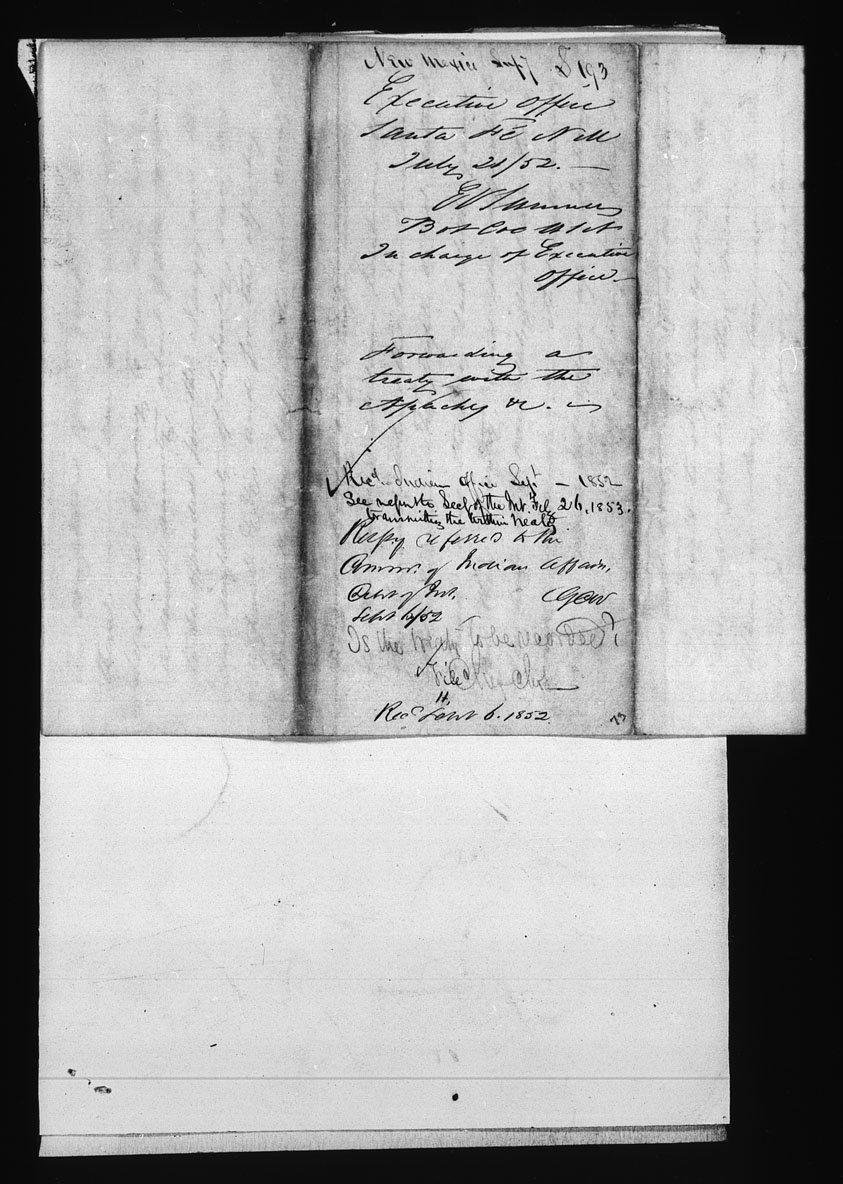 New Mexico Supy S 193
Executive Office
Santa Fé N M
July 21/52. —
E V Sumner
Bvt Col USA
In charge of Executive
Office —
Forwarding a
treaty with the
Apaches &c.
Recd. Indian Office Sept — 1852
See report to Secy of the Int. Feb 26, 1853.
transmitting the within treaty
Respy. referred to the
Commr. of Indian Affairs.
Dept of Int.
Sept 6/52
Is the treaty to be recorded?
File
Recd Sept 6. 1852